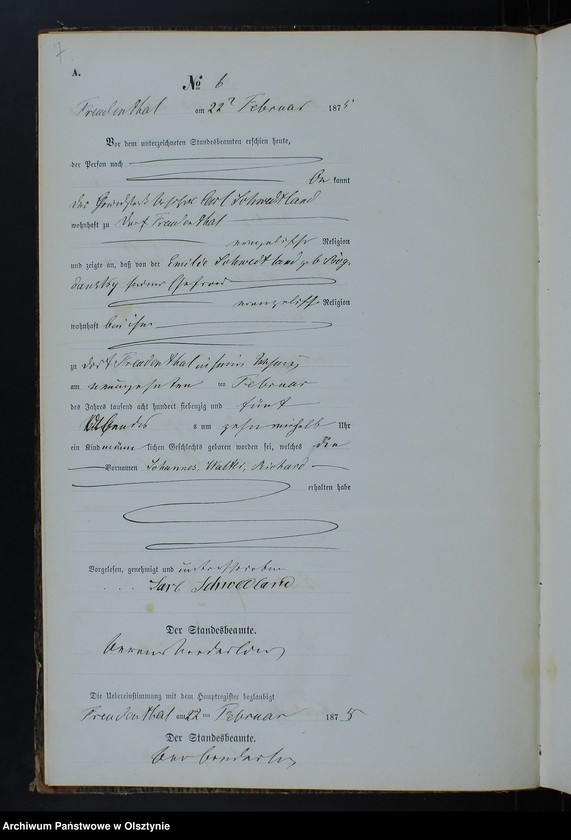 7
A.
№ 6
Freudenthal am 22n Februar 1875
Vor dem unterzeichneten Standesbeamten erschien heute,
der Person nach
kannt
der Carl Schwedtland
wohnhaft zu Dorf Freudenthal
evangelischer Religion
und zeigte an, daß von der Emilie Schwedtland geb.
seiner Ehefrau
evangelischer Religion
wohnhaft bei ihm
zu Dorf Freudenthal in seiner Wohnung
am neunzehnten ten Februar
des Jahres tausend acht hundert siebenzig und fünf
Abends s um zehn einhalb Uhr
ein Kind männ lichen Geschlechts geboren worden sei, welches die
Vornamen Johannes, Walter, Richard
erhalten habe
Vorgelesen, genehmigt und unterschrieben
Carl Schwedtland
Der Standesbeamte.
Die Uebereinstimmung mit dem Hauptregister beglaubigt
Freudenthal am 22 ten Februar 1875
Der Standesbeamte.
Archiwum Państwowe w Olsztynie